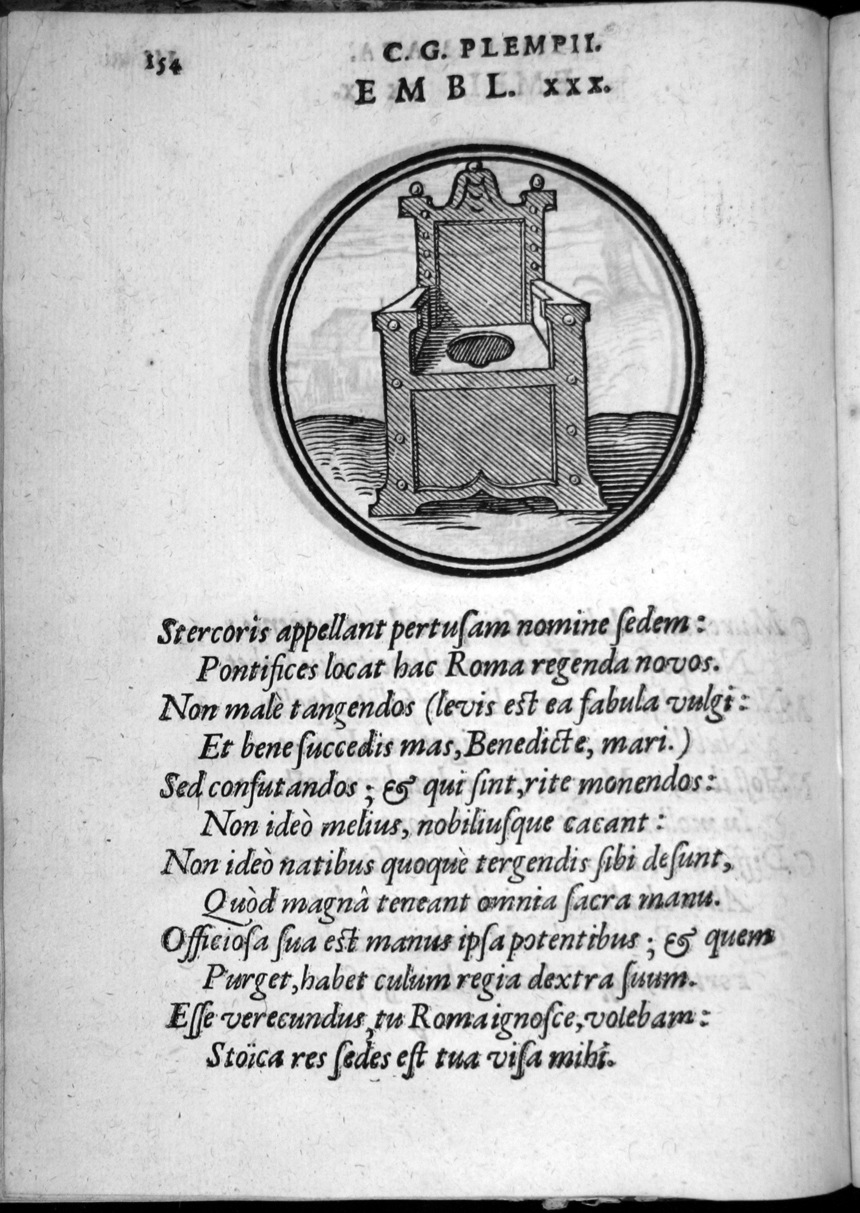 154
C. G. PLEMPII.
EMBL. XXX.
Stercoris appellant pertuſam nomine ſedem:
Pontifices locat hac Roma regenda novos.
Non malè tangendos (levis est ea fabula vulgi:
Et bene ſuccedis mas, Benedicte, mari.)
Sed confutandos; & qui ſint, rite monendos:
Non ideò melius, nobiliuſque cacant:
Non ideò natibus quoquè tergendis ſibi deſunt,
Quòd magnâ teneant omnia ſacra manu.
Officioſa ſua est manus ipſa potentibus; & quem
Purget, habet culum regia dextra ſuum.
Eſſe verecundus, tu Roma ignoſce, volebam:
Stoïca res ſedes eſt tua viſa mihi.